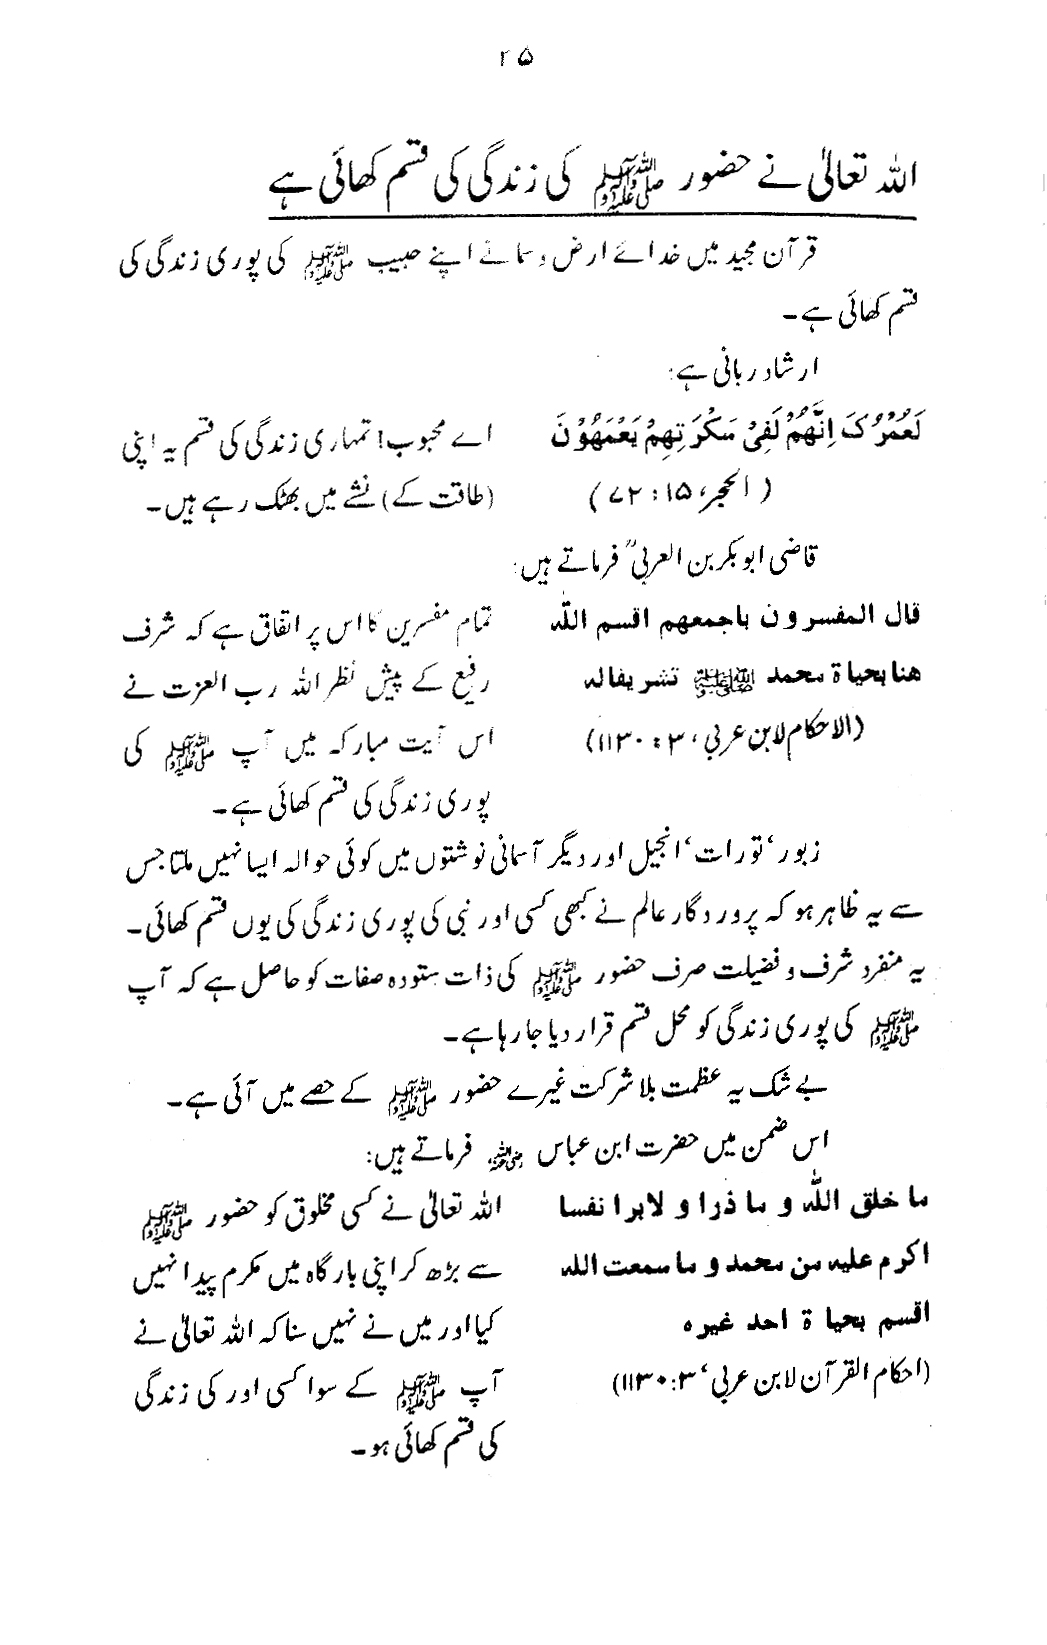 ۲۵
اللہ تعالیٰ نے حضور ﷺ کی زندگی کی قسم کھائی ہے
قرآن مجید میں خدائے ارض و سما نے اپنے حبیب ﷺ کی پوری زندگی کی
قسم کھائی ہے۔
ارشاد ربانی ہے:
لَعَمْرُکَ اِنَّهُمْ لَفِیْ سَکْرَتِهِمْ یَعْمَهُوْنَ
(الحجر، ۱۵:۷۲)
اے محبوب! تمہاری زندگی کی قسم یہ اپنی
(طاقت کے) نشے میں بھٹک رہے ہیں۔
قاضی ابوبکر بن العربیؒ فرماتے ہیں:
قال المفسرون باجمعهم اقسم اللّٰه
هنا بحياة محمد ﷺ تشريفا له
(الاحکام لابن عربی، ۳:۱۱۳۰)
تمام مفسرین کا اس پر اتفاق ہے کہ شرف
رفیع کے پیش نظر اللہ رب العزت نے
اس آیت مبارکہ میں آپ ﷺ کی
پوری زندگی کی قسم کھائی ہے۔
زبور‘ تورات‘ انجیل اور دیگر آسمانی نوشتوں میں کوئی حوالہ ایسا نہیں ملتا جس
سے یہ ظاہر ہو کہ پروردگار عالم نے کبھی کسی اور نبی کی پوری زندگی کی یوں قسم کھائی۔
یہ منفرد شرف و فضیلت صرف حضور ﷺ کی ذات ستودہ صفات کو حاصل ہے کہ آپ
ﷺ کی پوری زندگی کو محل قسم قرار دیا جا رہا ہے۔
بے شک یہ عظمت بلا شرکت غیرے حضور ﷺ کے حصے میں آئی ہے۔
اس ضمن میں حضرت ابن عباس رضی اللہ عنہ فرماتے ہیں:
ما خلق اللّٰه و ما ذرا و لا برا نفسا
اکرم علیه من محمد و ما سمعت الله
اقسم بحیاة احد غیره
(احکام القرآن لابن عربی‘ ۳:۱۱۳۰)
اللہ تعالیٰ نے کسی مخلوق کو حضور ﷺ
سے بڑھ کر اپنی بارگاہ میں مکرم پیدا نہیں
کیا اور میں نے نہیں سنا کہ اللہ تعالیٰ نے
آپ ﷺ کے سوا کسی اور کی زندگی
کی قسم کھائی ہو۔